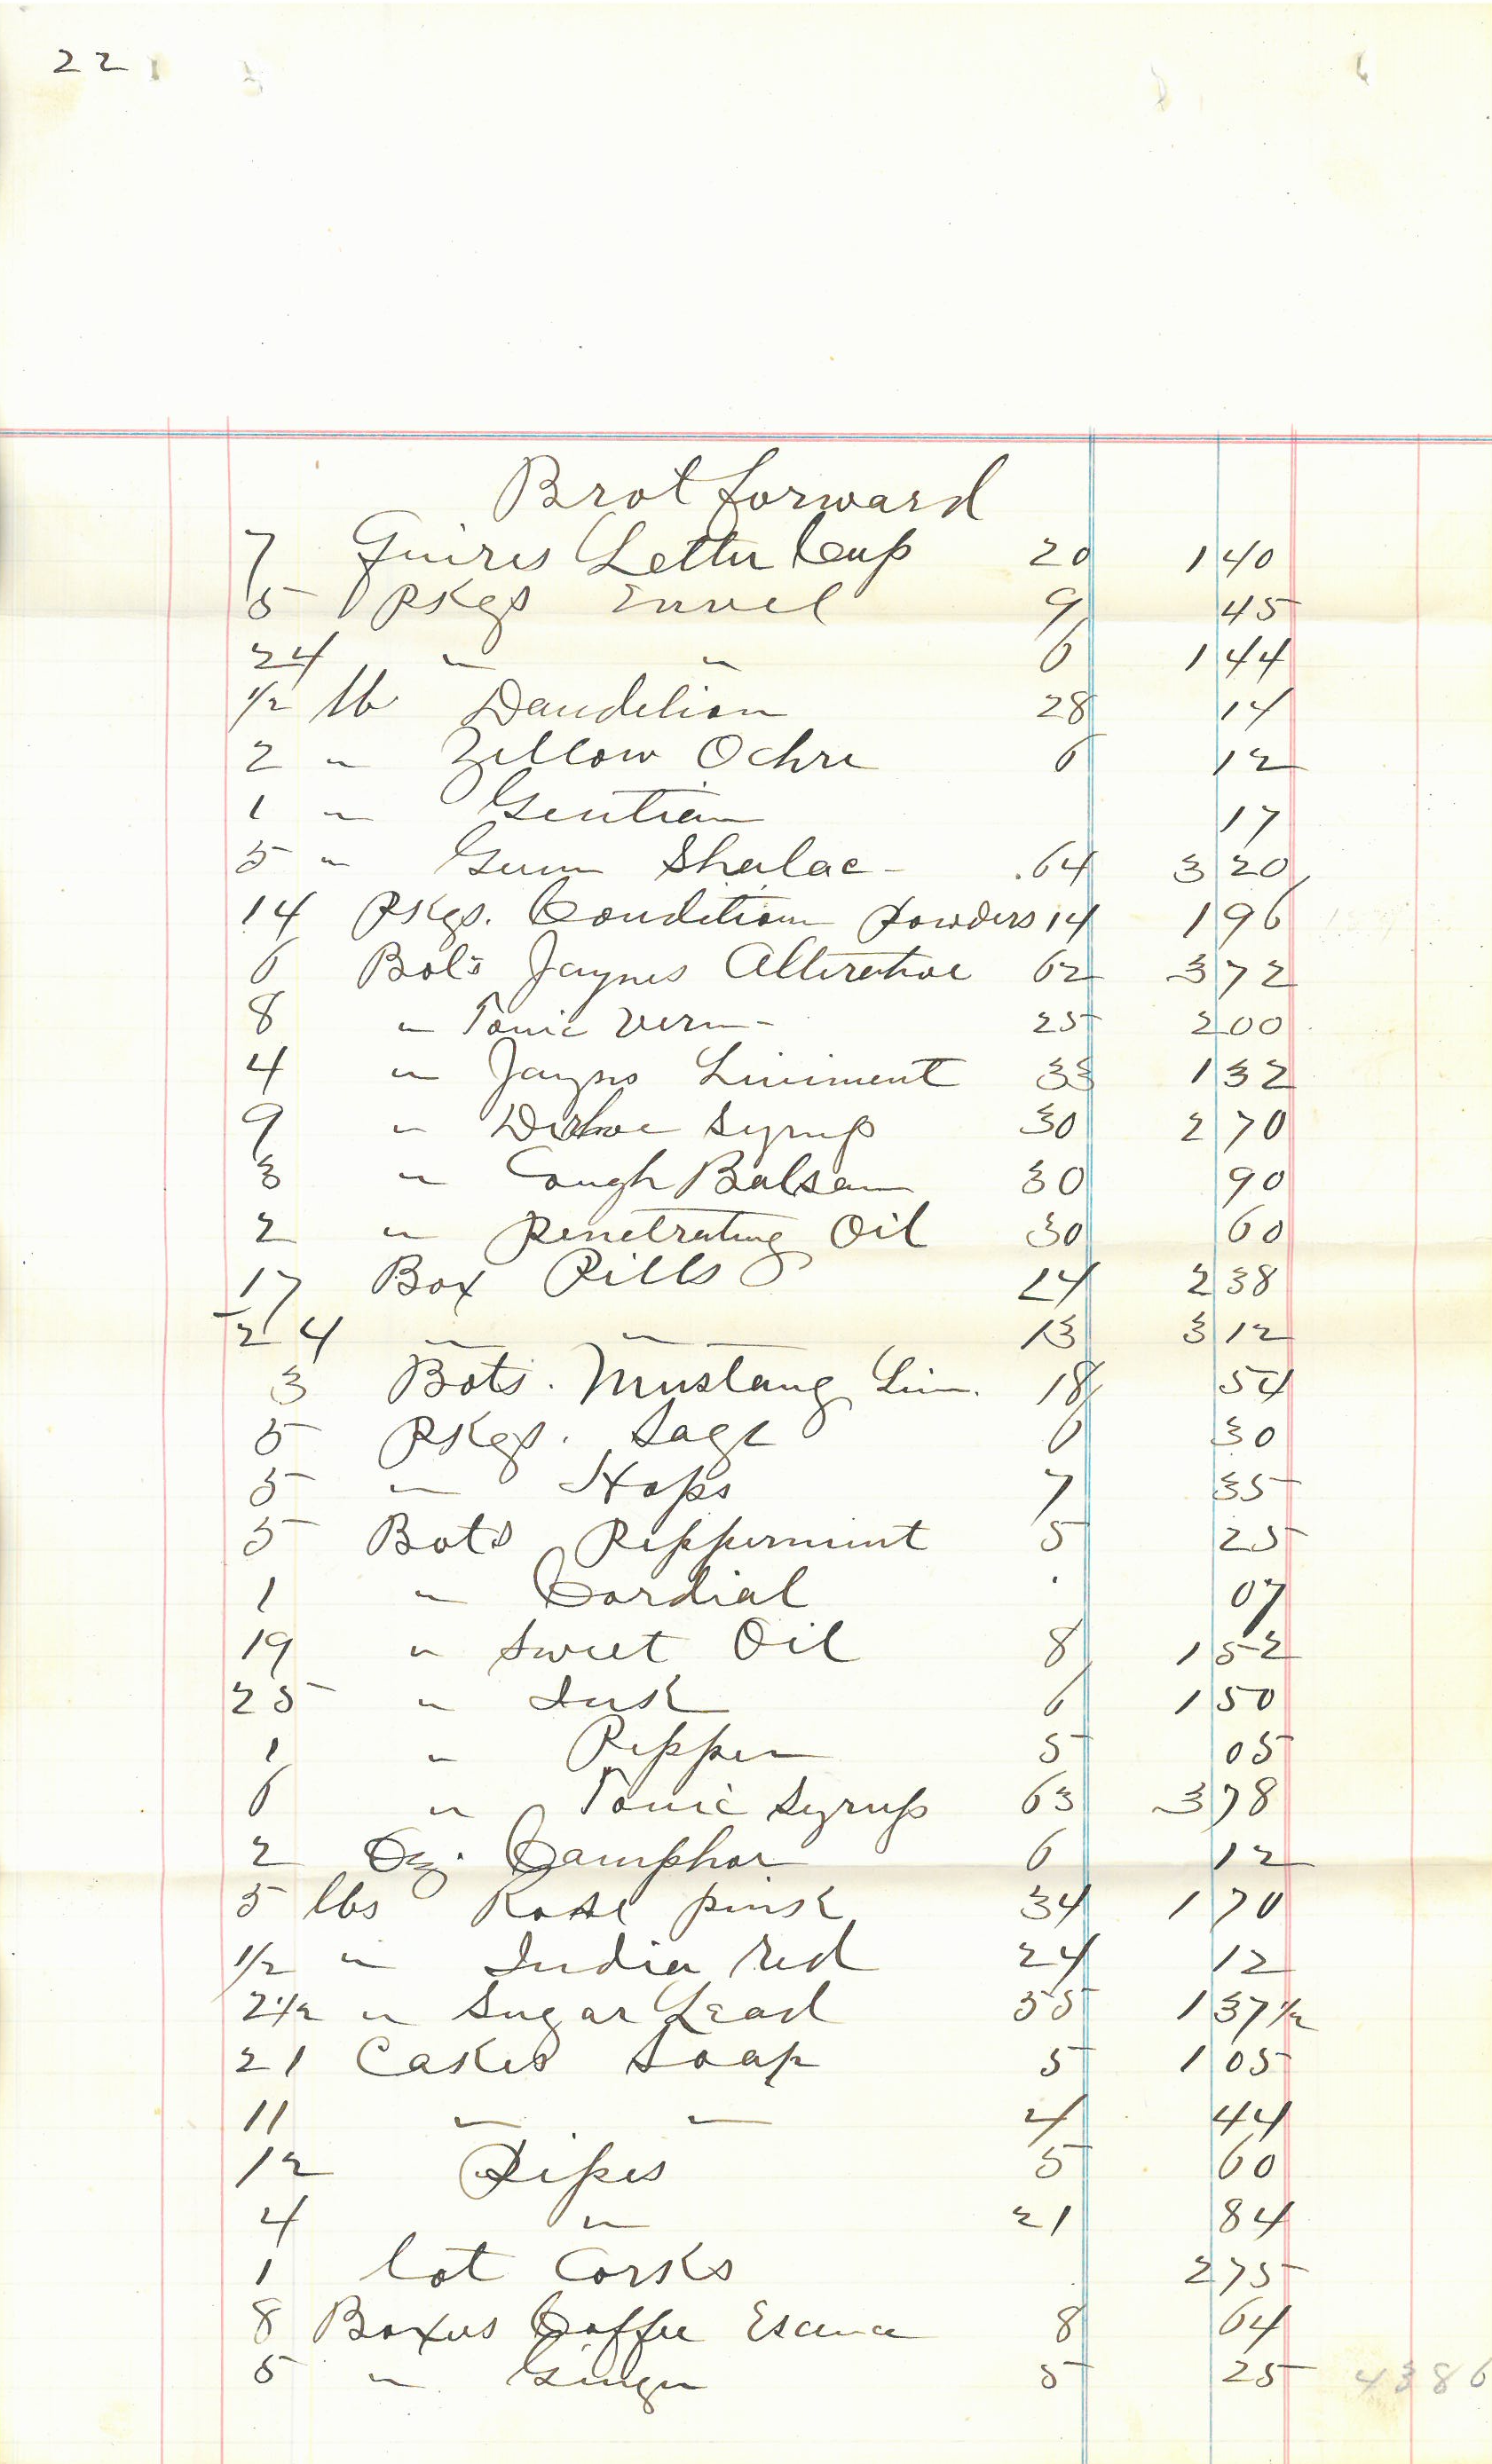 22
Brot forward
7 Quires Letter Cap 20 1 40
5 Pkgs Envel 9 45
24 " " 6 1 44
1/2 lb Dandelion 28 14
2 " Yellow Ochre 6 12
1 " Gentian 17
5 " Gum Shalac - .64 3 20
14 Pkgs. Condition Powders 14 1 96
6 Bots Jaynes Alterative 62 3 72
8 " Tonic Verm - 25 2 00
4 " Jaynes Liniment 33 1 32
9 " Syrup 30 2 70
3 " Cough Balsam 30 90
2 " Penetrating Oil 30 60
17 Box Pills 14 2 38
24 " " 13 3 12
3 Bots. Mustang Lin. 18 54
5 Pkgs. Sage 6 30
5 " Hops 7 35
5 Bots Peppermint 5 25
1 " Cordial 07
19 " Sweet Oil 8 1 52
25 " Ink 6 1 50
1 " Pepper 5 05
6 " Tonic Syrup 63 3 78
2 Oz. Camphor 6 12
5 lbs Rose pink 34 1 70
1/2 " India Red 24 12
2 1/2 " Sugar Lead 55 1 37 1/2
21 Cakes Soap 5 1 05
11 " " 4 44
12 Pipes 5 60
4 " 21 84
1 Lot Corks 2 75
8 Boxes Coffee 8 64
5 " Ginger 5 25 4386